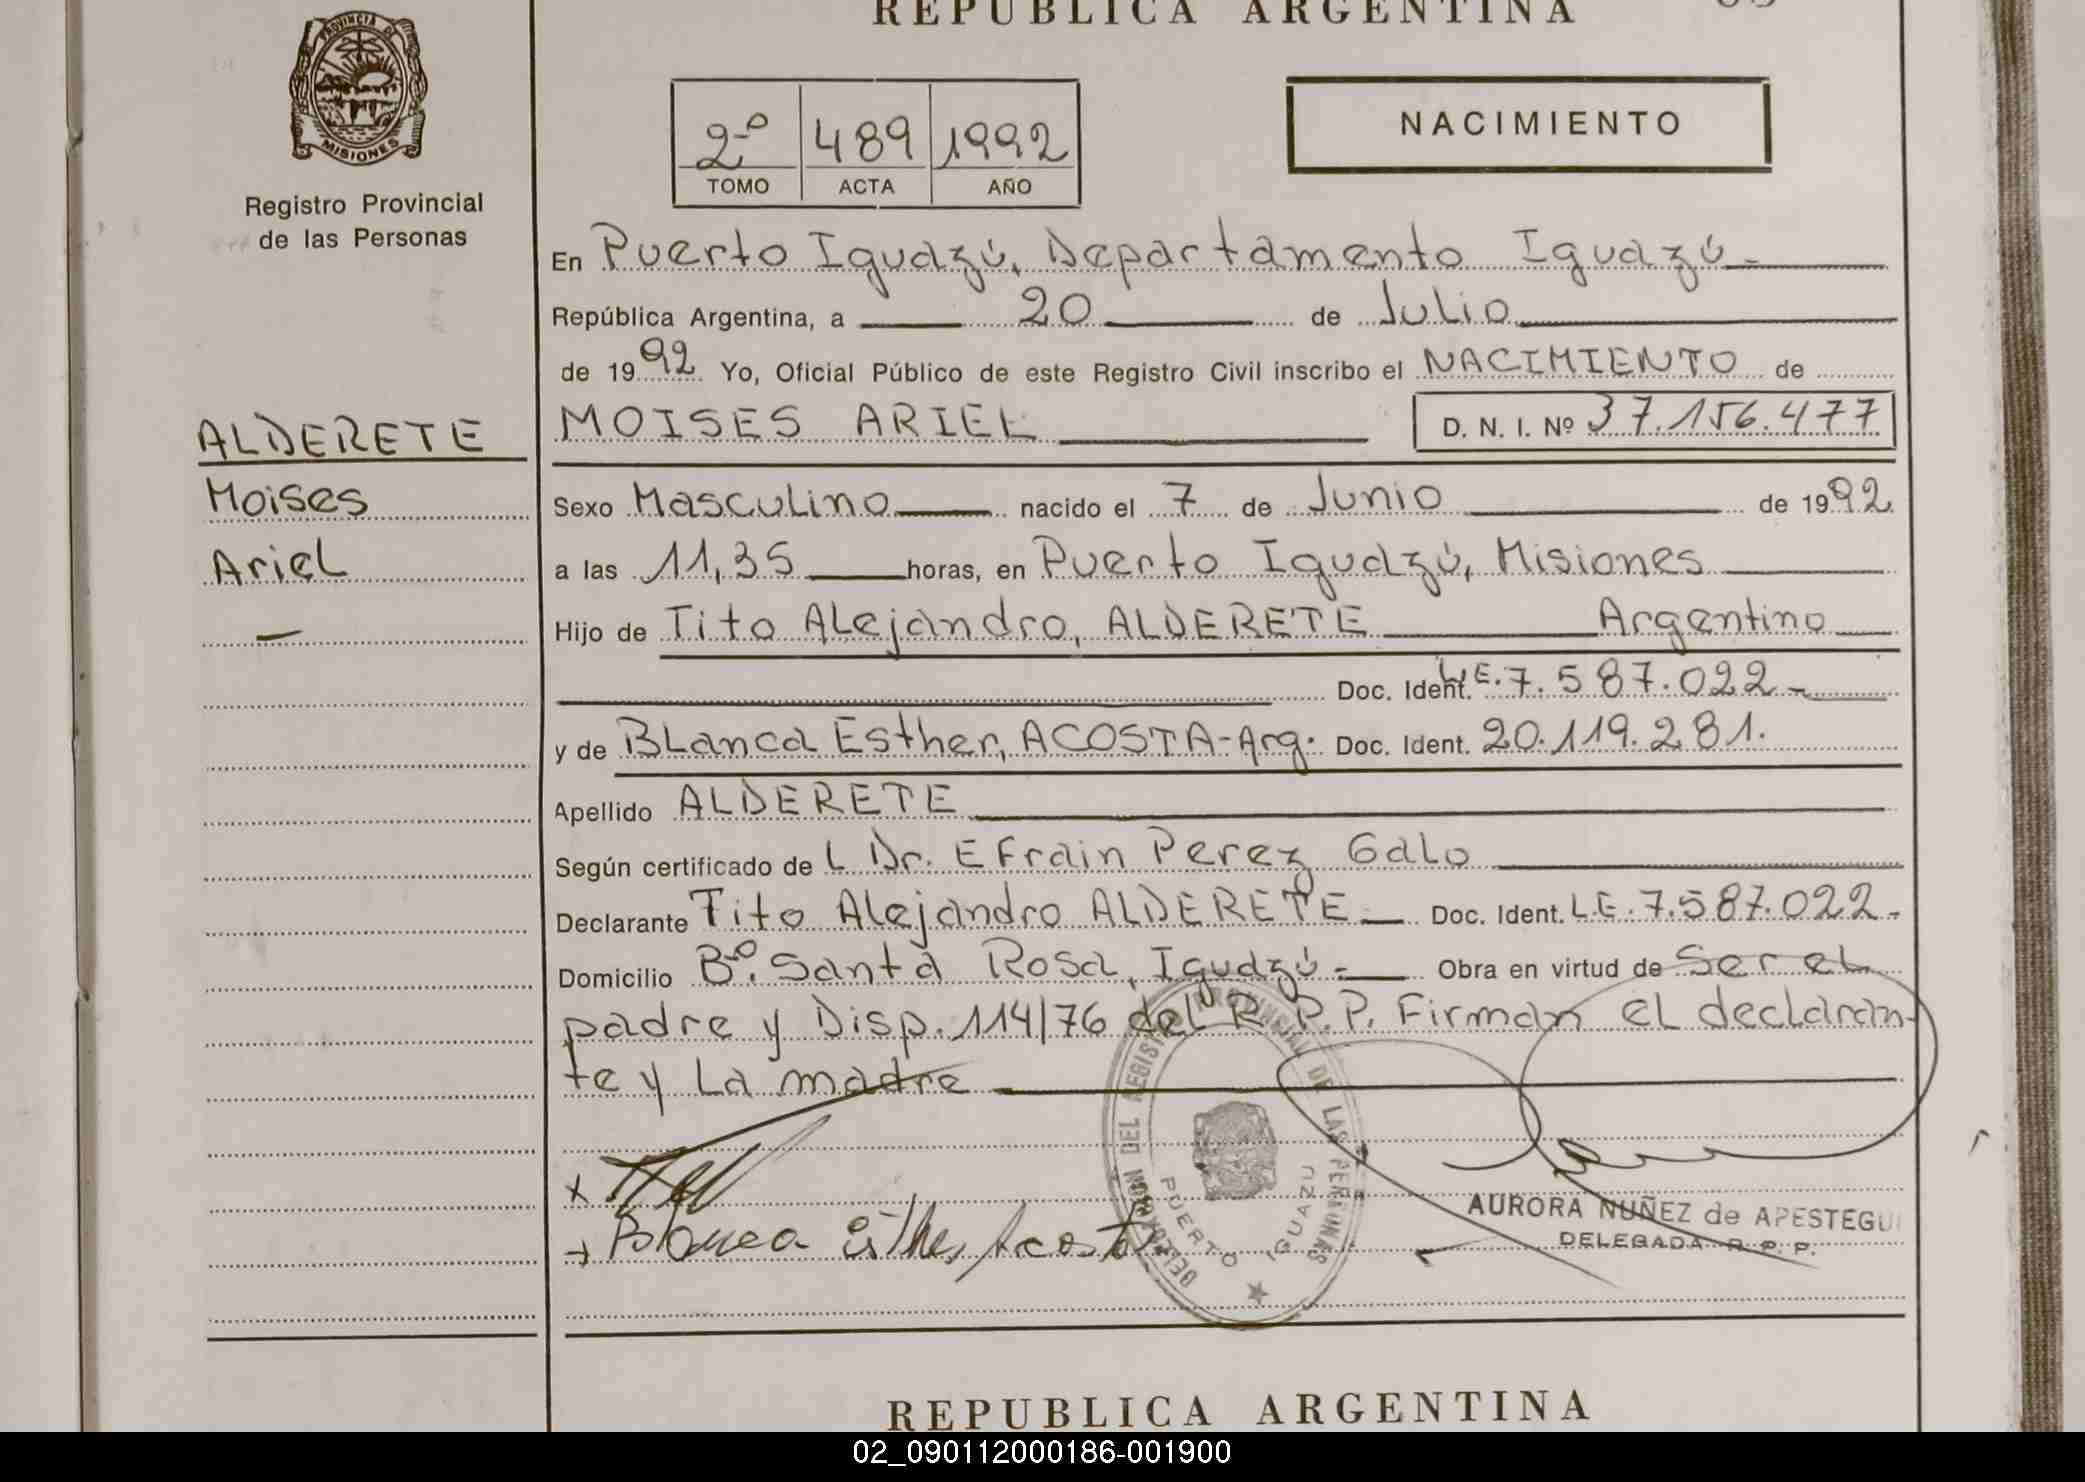 REPUBLICA ARGENTINA
PROVINCIA DE
MISIONES
Registro Provincial
de las Personas
2º 489 1992
TOMO ACTA AÑO
NACIMIENTO
En Puerto Iguazú, Departamento Iguazú.
República Argentina, a 20 de Julio
de 1992 Yo, Oficial Público de este Registro Civil inscribo el NACIMIENTO de
MOISES ARIEL D. N. I. Nº 37.156.477
ALDERETE
Moises
Ariel
Sexo Masculino nacido el 7 de Junio de 1992
a las 11,35 horas, en Puerto Iguazú, Misiones
Hijo de Tito Alejandro, ALDERETE Argentino
Doc. Ident. L.E. 7.587.022-
y de Blanca Esther, ACOSTA-Arg. Doc. Ident. 20.119.281.
Apellido ALDERETE
Según certificado de L Dr. Efrain Perez Galo
Declarante Tito Alejandro ALDERETE Doc. Ident. L.E. 7.587.022-
Domicilio Bº. Santa Rosa, Iguazú - Obra en virtud de Ser el
padre y Disp. 114/76 del R. P. P. Firman el declaran-
te y La madre
Blanca Esther Acosta
DELEGACION DEL REGISTRO PROVINCIAL DE LAS PERSONAS
PUERTO IGUAZU
AURORA NUÑEZ de APESTEGUI
DELEGADA R. P. P.
REPUBLICA ARGENTINA
02_090112000186-001900